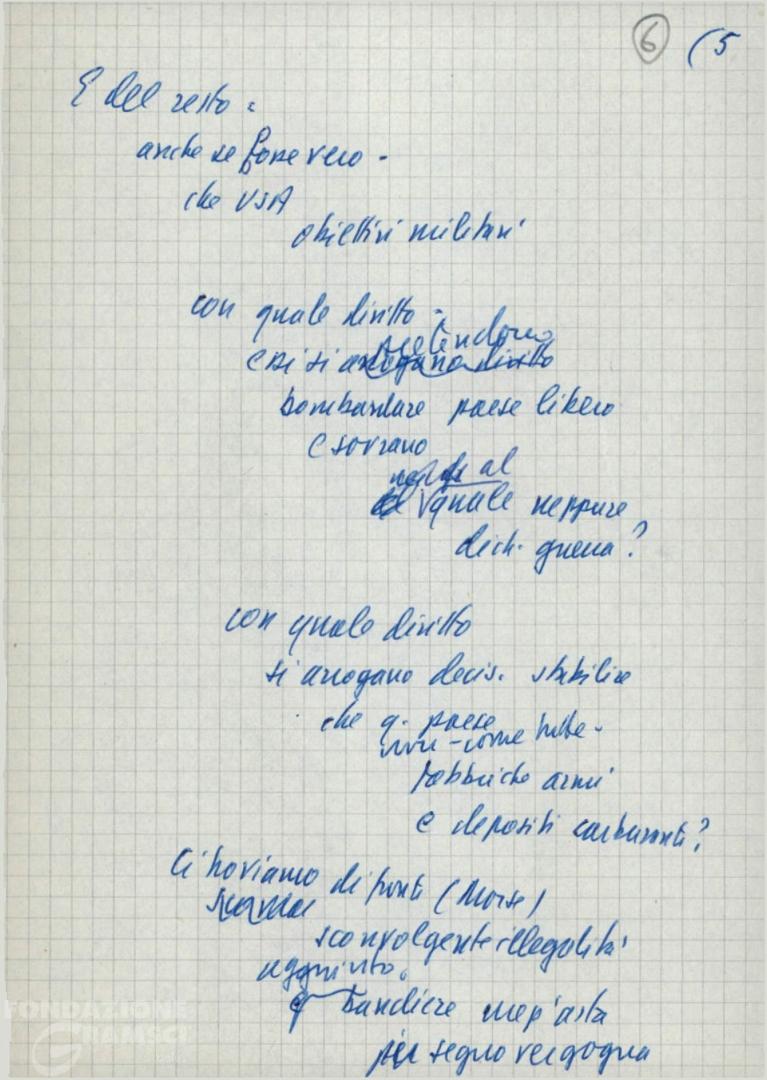 6 (5
E del resto:
anche se fosse vero -
che USA
obiettivi militari
con quale diritto -
pretendono
essi si arrogano diritto
bombardare paese libero
e sovrano
al
quale neppure
dich. guerra?
con quale diritto
si arrogano decis. stabilire
che q. paese
non - come tutte -
fabbriche armi
e depositi carburanti?
Ci troviamo di fronte (Morse)
sconvolgente illegalità
aggiunto:
e bandiere mezz'asta
per segno vergogna
FONDAZIONE
GRAMSCI